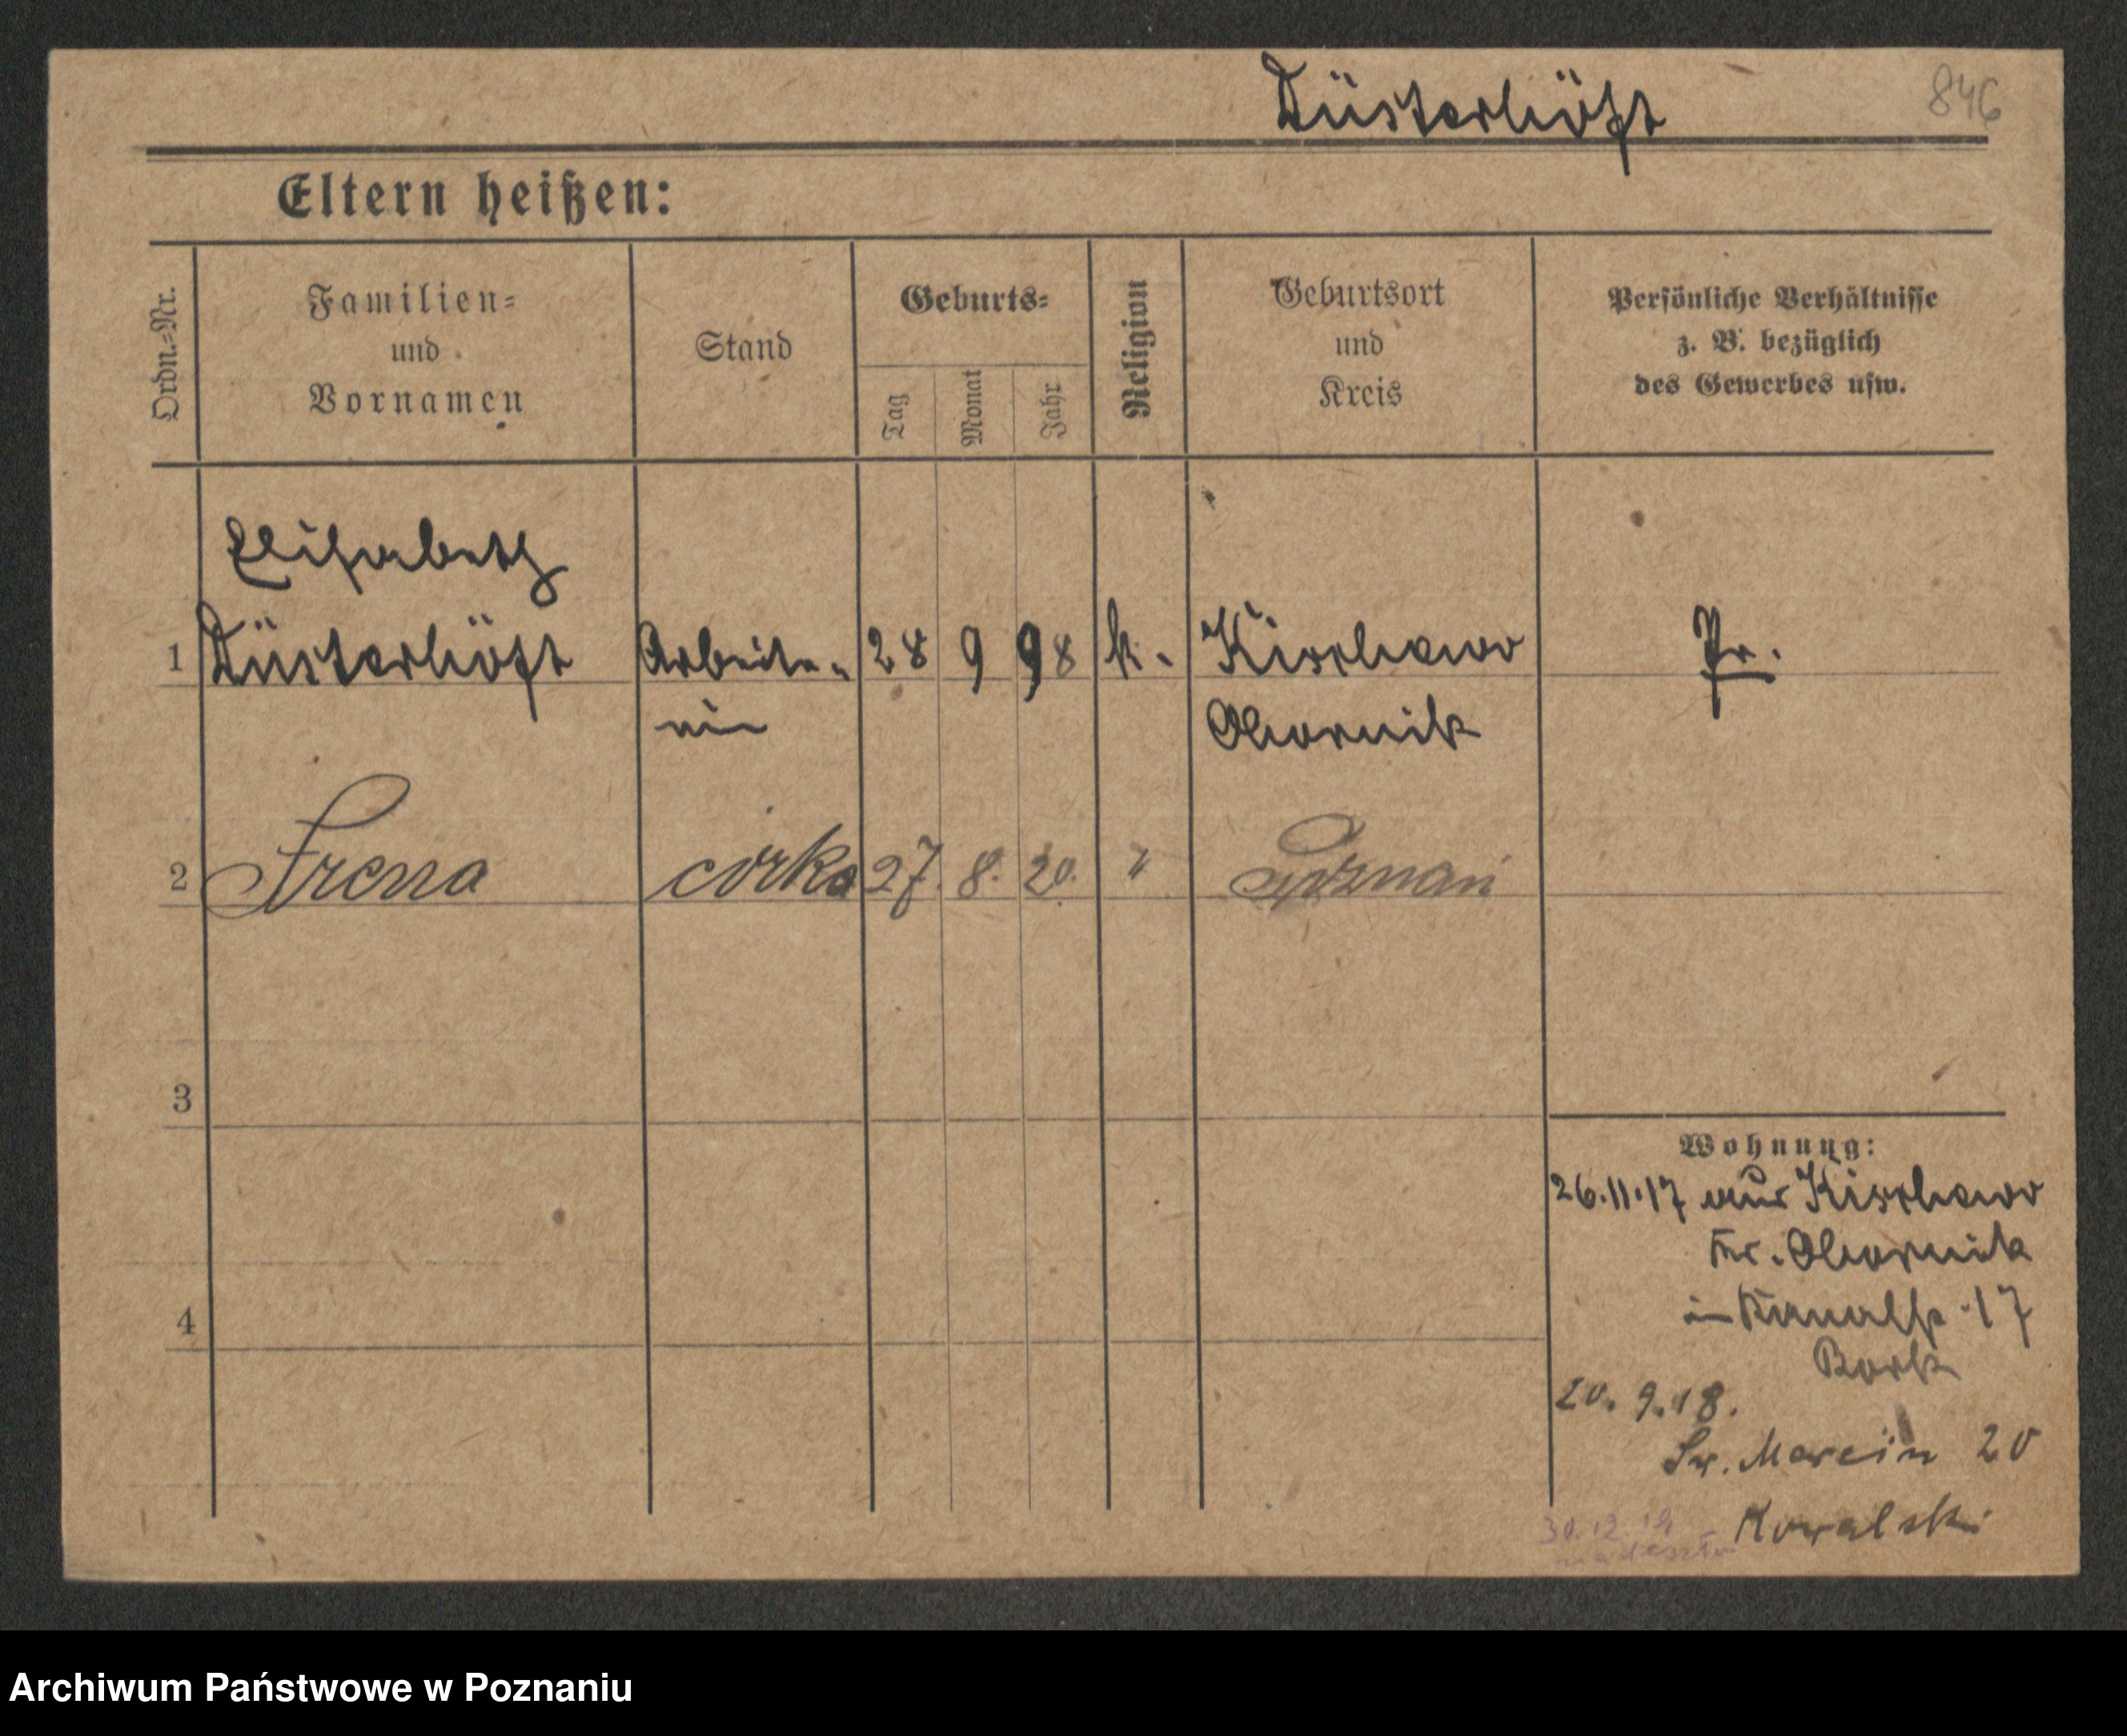 Düsterhöft
846
Eltern heißen:
Ordn.=Nr.
Familien=
und
Vornamen
Stand
Geburts=
Tag
Monat
Jahr
Religion
Geburtsort
und
Kreis
Persönliche Verhältnisse
z. B. bezüglich
des Gewerbes usw.
Elisabeth
1 Düsterhöft Arbeite- 28 9 98 k. Kirchawo Pr.
rin Obornik
2 Irena córka 27. 8. 20. " Poznań
3
4
Wohnung:
26.11.17 aus Kirchawo
Kr. Obornik
in Kanalstr. 17
Bork
20. 9. 18.
Św. Marcin 20
Kowalski
30.12.19
Archiwum Państwowe w Poznaniu